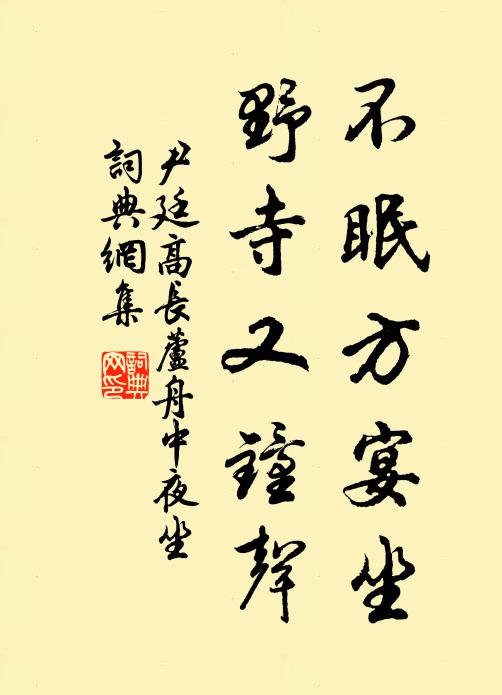 不眠方宴坐
野寺又鐘聲
尹廷高長蘆舟中夜坐
詞典網集
詞典網印